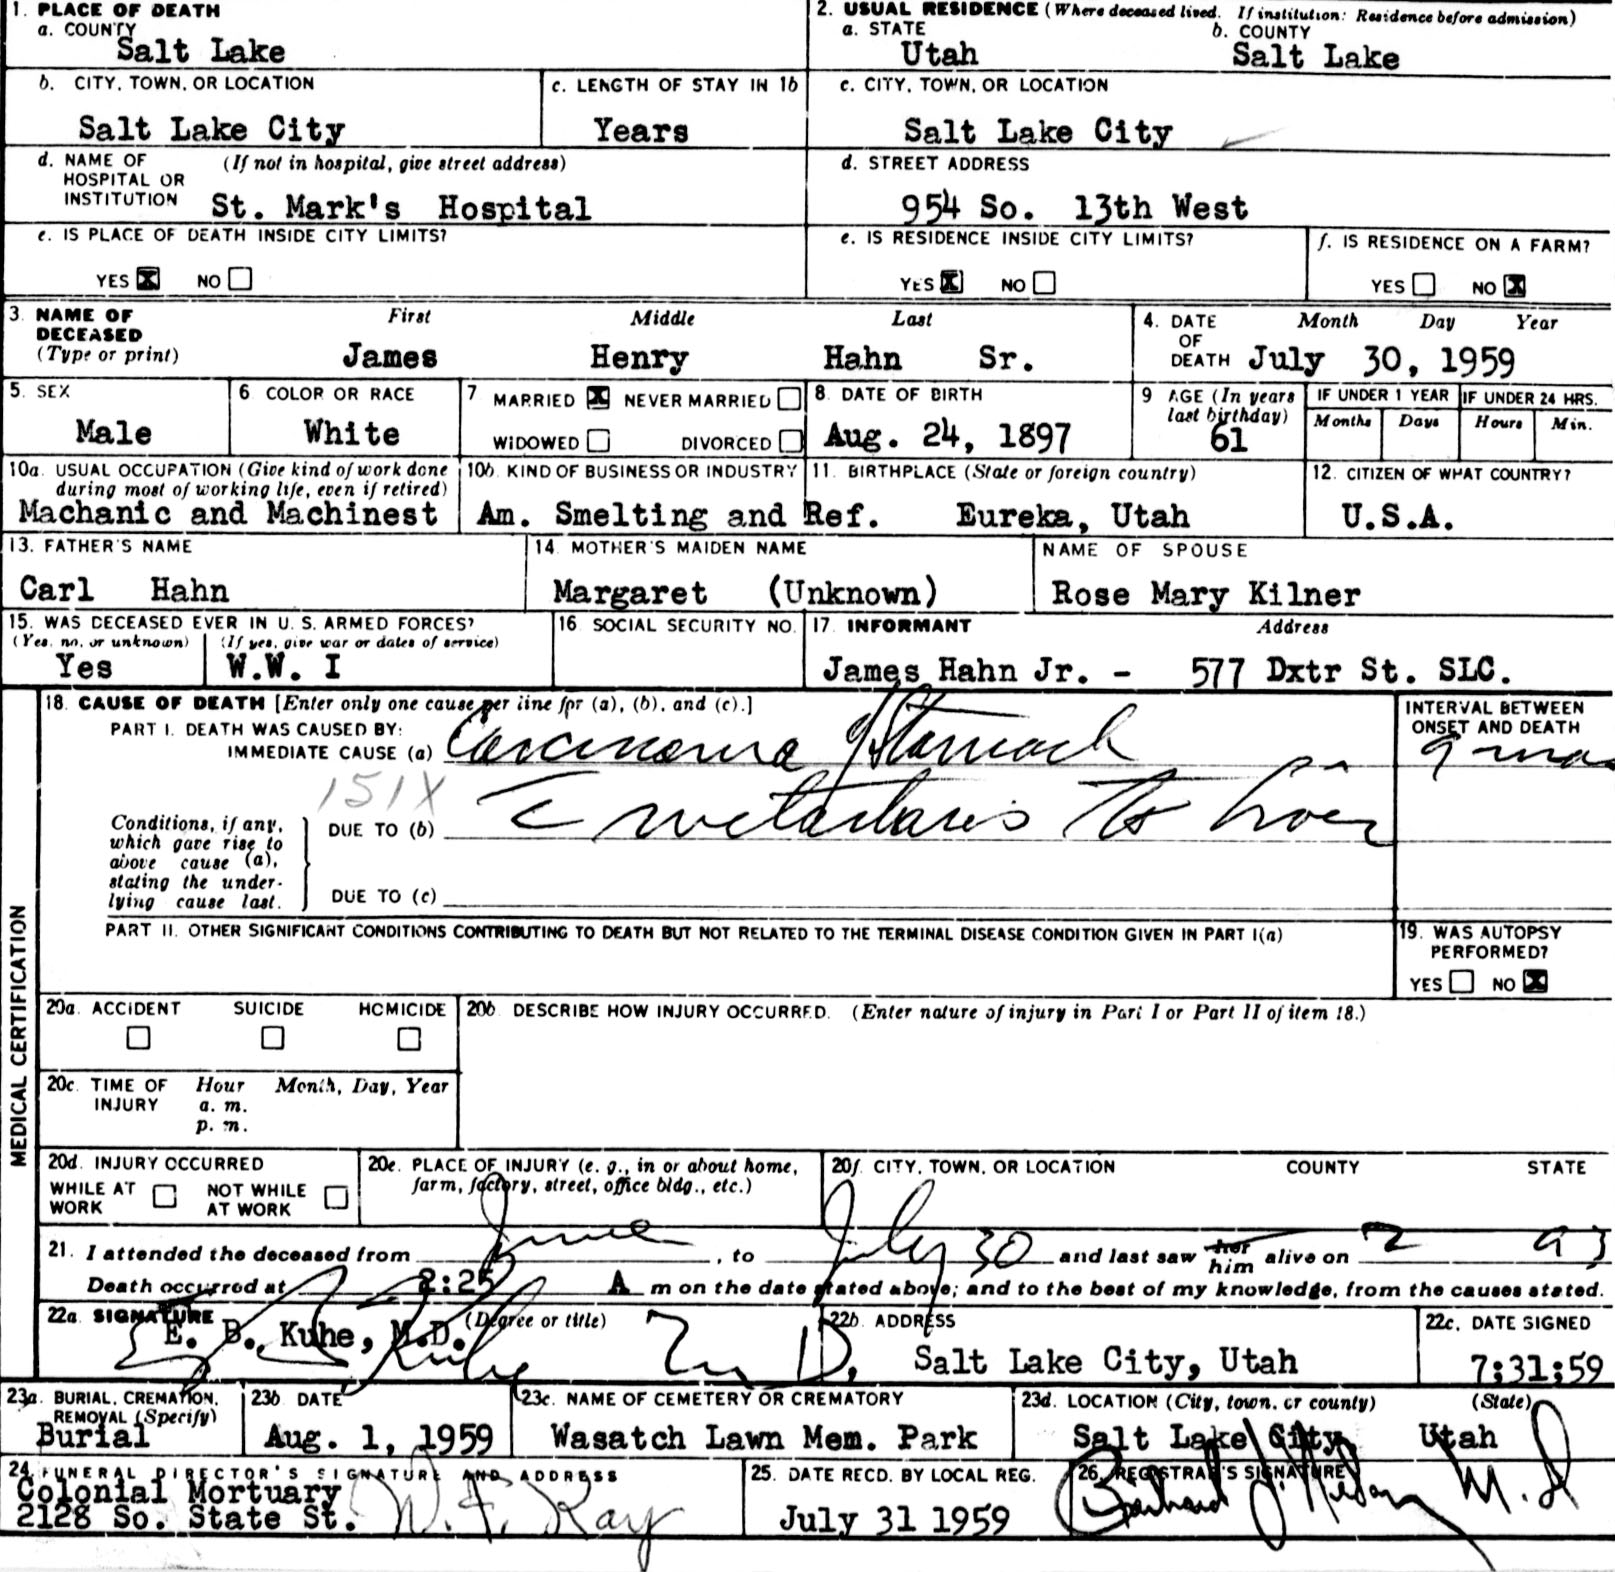 1. PLACE OF DEATH
a. COUNTY
Salt Lake
2. USUAL RESIDENCE (Where deceased lived. If institution: Residence before admission)
a. STATE
Utah
b. COUNTY
Salt Lake
b. CITY, TOWN, OR LOCATION
Salt Lake City
c. LENGTH OF STAY IN 1b
Years
c. CITY, TOWN, OR LOCATION
Salt Lake City
d. NAME OF HOSPITAL OR INSTITUTION (If not in hospital, give street address)
St. Mark's Hospital
d. STREET ADDRESS
954 So. 13th West
e. IS PLACE OF DEATH INSIDE CITY LIMITS?
YES X NO
e. IS RESIDENCE INSIDE CITY LIMITS?
YES X NO
f. IS RESIDENCE ON A FARM?
YES NO X
3. NAME OF DECEASED (Type or print)
First Middle Last
James Henry Hahn Sr.
4. DATE OF DEATH
Month Day Year
July 30, 1959
5. SEX
Male
6. COLOR OR RACE
White
7. MARRIED X NEVER MARRIED
WIDOWED DIVORCED
8. DATE OF BIRTH
Aug. 24, 1897
9. AGE (In years last birthday)
61
IF UNDER 1 YEAR
Months Days
IF UNDER 24 HRS.
Hours Min.
10a. USUAL OCCUPATION (Give kind of work done during most of working life, even if retired)
Machanic and Machinest
10b. KIND OF BUSINESS OR INDUSTRY
Am. Smelting and Ref.
11. BIRTHPLACE (State or foreign country)
Eureka, Utah
12. CITIZEN OF WHAT COUNTRY?
U.S.A.
13. FATHER'S NAME
Carl Hahn
14. MOTHER'S MAIDEN NAME
Margaret (Unknown)
NAME OF SPOUSE
Rose Mary Kilner
15. WAS DECEASED EVER IN U. S. ARMED FORCES?
(Yes, no, or unknown) (If yes, give war or dates of service)
Yes W.W. I
16. SOCIAL SECURITY NO.
17. INFORMANT Address
James Hahn Jr. - 577 Dxtr St. SLC.
MEDICAL CERTIFICATION
18. CAUSE OF DEATH [Enter only one cause per line for (a), (b), and (c).]
PART I. DEATH WAS CAUSED BY:
IMMEDIATE CAUSE (a) Carcinoma of Stomach
INTERVAL BETWEEN ONSET AND DEATH
9 mos
151X
Conditions, if any, which gave rise to above cause (a), stating the underlying cause last.
DUE TO (b) c metastasis to liver
DUE TO (c)
PART II. OTHER SIGNIFICANT CONDITIONS CONTRIBUTING TO DEATH BUT NOT RELATED TO THE TERMINAL DISEASE CONDITION GIVEN IN PART I(a)
19. WAS AUTOPSY PERFORMED?
YES NO X
20a. ACCIDENT SUICIDE HOMICIDE
20b. DESCRIBE HOW INJURY OCCURRED. (Enter nature of injury in Part I or Part II of item 18.)
20c. TIME OF INJURY Hour Month, Day, Year
a. m.
p. m.
20d. INJURY OCCURRED
WHILE AT WORK NOT WHILE AT WORK
20e. PLACE OF INJURY (e. g., in or about home, farm, factory, street, office bldg., etc.)
20f. CITY, TOWN, OR LOCATION COUNTY STATE
21. I attended the deceased from June, to July 30 and last saw her him alive on
Death occurred at 2:25 A m on the date stated above; and to the best of my knowledge, from the causes stated.
22a. SIGNATURE (Degree or title)
E. B. Kuhe, M.D.
M D.
22b. ADDRESS
Salt Lake City, Utah
22c. DATE SIGNED
7:31:59
23a. BURIAL, CREMATION, REMOVAL (Specify)
Burial
23b. DATE
Aug. 1, 1959
23c. NAME OF CEMETERY OR CREMATORY
Wasatch Lawn Mem. Park
23d. LOCATION (City, town, or county) (State)
Salt Lake City Utah
24. FUNERAL DIRECTOR'S SIGNATURE AND ADDRESS
Colonial Mortuary
2128 So. State St.
W. F. Ray
25. DATE RECD. BY LOCAL REG.
July 31 1959
26. REGISTRAR'S SIGNATURE
M. D